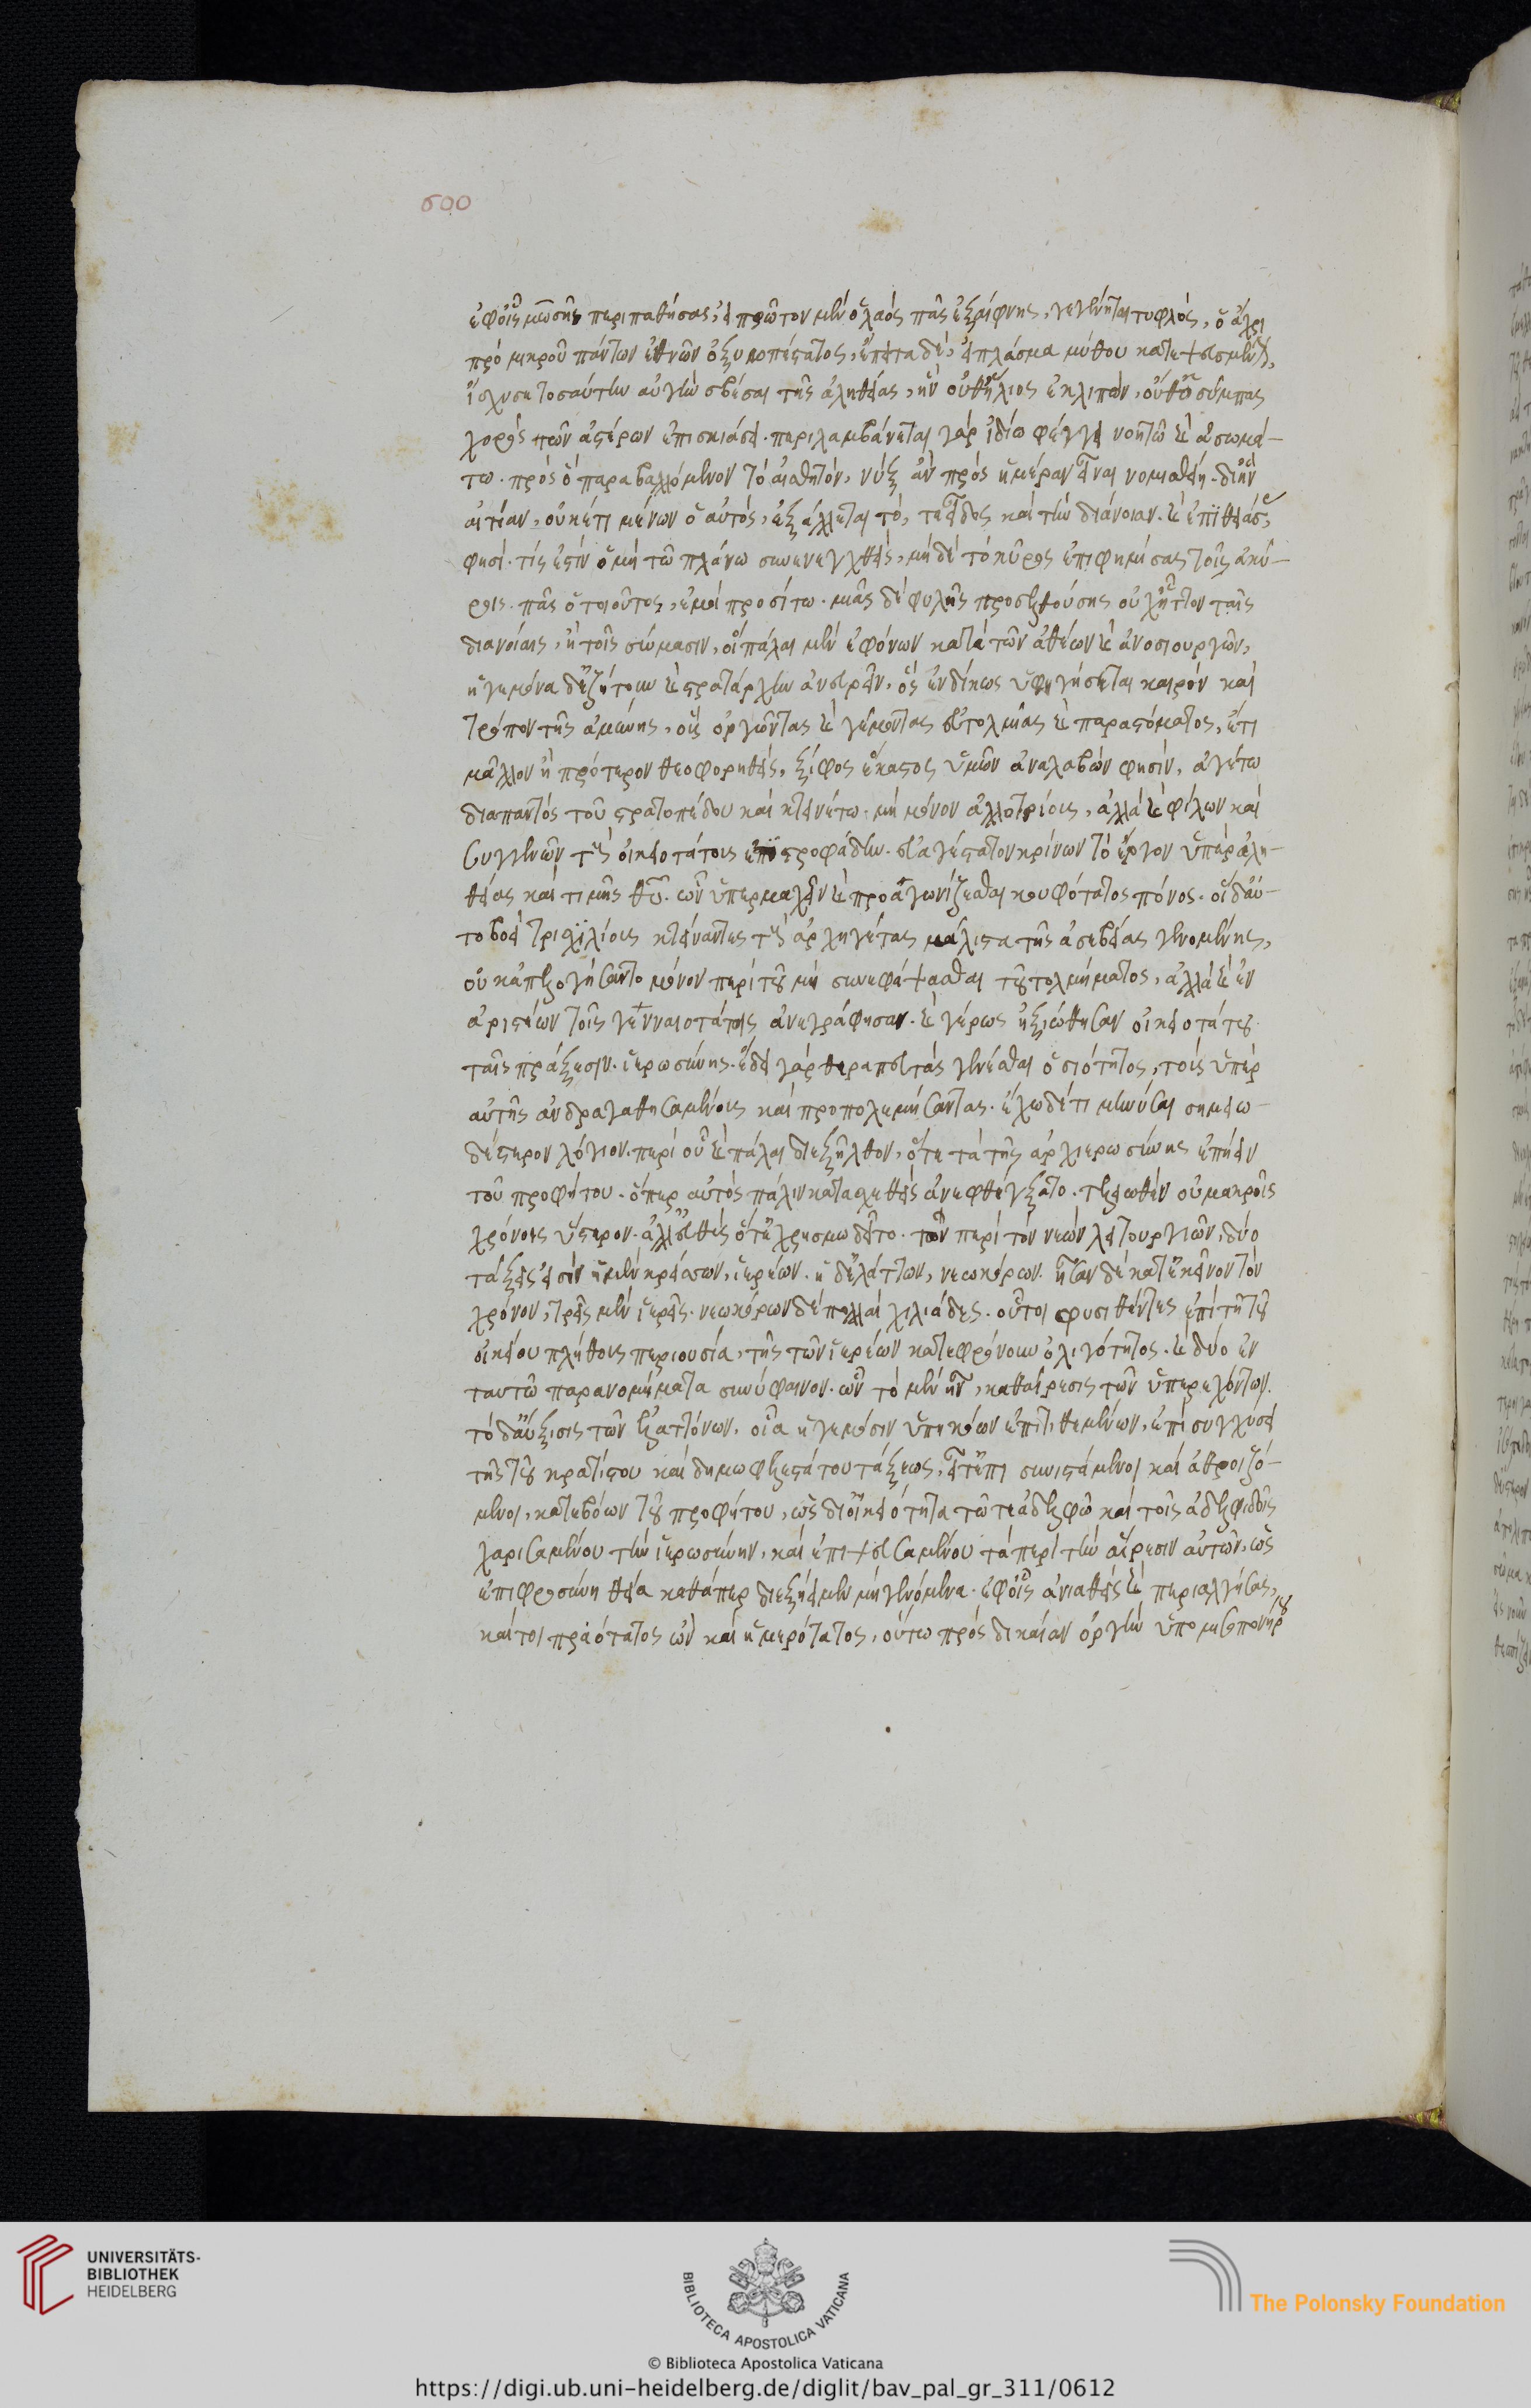 600
ἐφοἷς μωσῆς περιπαθήσας, εἰ πρῶτον μὲν ὁ λαός πᾶς ἐξαίφνης, γεγένηται τυφλός, ὁ ἄχρι
πρό μικροῦ πάντων ἐθνῶν ὀξυωπέστατος, ἔπειτα δέ, εἰ πλάσμα μύθου κατεψευσμένον,
ἴσχυσε τοσαύτην αὐγὴν σβέσαι τῆς ἀληθείας, ἣν οὔθ' ἥλιος ἐκλιπών, οὔθ' ὁ σύμπας
χορός τῶν ἀστέρων ἐπισκιάσει. περιλαμβάνεται γάρ ἰδίῳ φέγγει νοητῷ καὶ ἀσωμά-
τω. πρός ὅ παραβαλλόμενον τό αἰσθητόν, νύξ ἄν πρός ἡμέραν εἶναι νομισθείη. δι' ἣν
αἰτίαν, οὐκέτι μένων ὁ αὐτός, ἐξάλλεται τό, τε εἶδος καί τὴν διάνοιαν. καὶ ἐπιθειάσας,
φησί. τίς ἐστίν ὁ μή τῷ πλάνῳ συνενεχθείς, μηδέ τό κῦρος ἐπιφημίσας τοῖς ἀκύ-
ροις. πᾶς ὁ τοιοῦτος, ἐμοί προσίτω. μιᾶς δέ φυλῆς προσελθούσης οὐχ ἧττον ταῖς
διανοίαις, ἢ τοῖς σώμασιν, οἵ πάλαι μέν ἐφόνων κατά τῶν ἀθέων καὶ ἀνοσιουργῶν,
ἡγεμόνα δ' ἐζήτουν καὶ στρατάρχην ἀνευρεῖν, ὅς ἐνδίκως ὑφηγήσεται καιρόν καί
τρόπον τῆς ἀμύνης, οὕς ὀργῶντας καὶ γέμοντας εὐτολμίας καὶ παραστήματος, ἔτι
μᾶλλον ἢ πρότερον θεοφορηθείς, ξίφος ἕκαστος ὑμῶν ἀναλαβών φησίν, ἀγέτω
διαπαντός τοῦ στρατοπέδου καί κτεινέτω. μή μόνον ἀλλοτρίους, ἀλλά καὶ φίλων καί
συγγενῶν τούς οἰκειοτάτους ἐπιστροφάδην. εὐαγέστατον κρίνων τό ἔργον ὑπέρ ἀλη-
θείας καί τιμῆς θεοῦ. ὧν ὑπερμαχεῖν καὶ προαγωνίζεσθαι κουφότατος πόνος. οἱ δ' αὐ-
τοβοεί τρισχιλίους κτείναντες τούς ἀρχηγέτας μάλιστα τῆς ἀσεβείας γενομένης,
οὐκ ἀπελογήσαντο μόνον περί τοῦ μή συνεφάψασθαι τοῦ τολμήματος, ἀλλά καὶ ἐν
ἀριστέων τοῖς γενναιοτάτοις ἀνεγράφησαν. καὶ γέρως ἠξιώθησαν οἰκειοτάτου
ταῖς πράξεσιν. ἱερωσύνης. ἔδει γάρ θεραπευτάς γενέσθαι ὁσιότητος, τούς ὑπέρ
αὐτῆς ἀνδραγαθησαμένους καί προπολεμήσαντας. ἔχω δέ τι μηνῦσαι σημειω-
δέστερον λόγιον. περί οὗ καὶ πάλαι διεξῆλθον, ὅτε τά τῆς ἀρχιερωσύνης ἐπῄειν
τοῦ προφήτου. ὅπερ αὐτός πάλιν κατασχεθείς ἀνεφθέγξατο. τελειωθέν οὐ μακροῖς
χρόνοις ὕστερον. ἀλλ' εὐθύς ὅτε ἐχρησμῳδεῖτο. τῶν περί τόν νεών λειτουργιῶν, δύο
τάξεις εἰσίν ἡ μέν κρείσσων, ἱερέων. ἡ δ' ἐλάττων, νεωκόρων. ἦσαν δέ κατ' ἐκεῖνον τόν
χρόνον, τρεῖς μέν ἱερεῖς. νεωκόρων δέ πολλαί χιλιάδες. οὗτοι φυσηθέντες ἐπί τῇ τοῦ
οἰκείου πλήθους περιουσίᾳ, τῆς τῶν ἱερέων κατεφρόνουν ὀλιγότητος. καὶ δύο ἐν
ταυτῷ παρανομήματα συνύφαινον. ὧν τό μέν ἦν, καθαίρεσις τῶν ὑπερεχόντων.
τό δ' αὔξησις τῶν ἐλαττόνων. οἷα ἡγεμόσιν ὑπηκόων ἐπιτιθεμένων, ἐπί συγχύσει
τῆς τοῦ κρατίστου καί δημωφελεστάτου τάξεως. εἶτ' ἔπι συνιστάμενοι καί ἀθροιζό-
μενοι, κατεβόων τοῦ προφήτου, ὡς δι' οἰκειότητα τῷ τε ἀδελφῷ καί τοῖς ἀδελφιδοῖς
χαρισαμένου τὴν ἱερωσύνην, καί ἐπιψευσαμένου τά περί τὴν αἵρεσιν αὐτῶν, ὡς
ἐπιφροσύνῃ θείᾳ καθάπερ διεξῄειμεν μή γενόμενα. ἐφ' οἷς ἀνιαθείς καὶ περιαλγήσας,
καίτοι πραότατος ὤν καί ἡμερότατος, οὕτω πρός δικαίαν ὀργὴν ὑπό μισοπονήρου
UNIVERSITÄTS-
BIBLIOTHEK
HEIDELBERG
BIBLIOTECA APOSTOLICA VATICANA
The Polonsky Foundation
© Biblioteca Apostolica Vaticana
https://digi.ub.uni-heidelberg.de/diglit/bav_pal_gr_311/0612